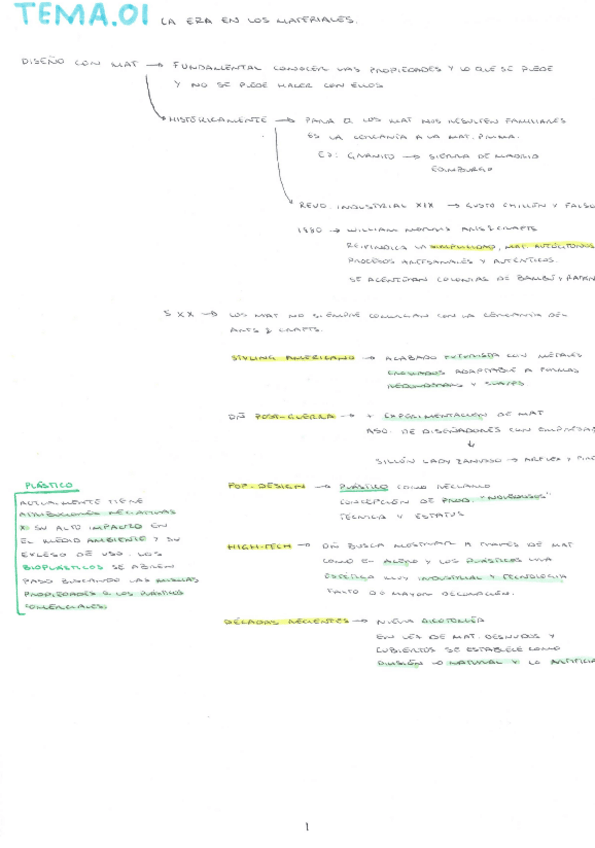 TEMA.01 LA ERA EN LOS MATERIALES.
DISEÑO CON MAT → FUNDAMENTAL CONOCER LAS PROPIEDADES Y LO QUE SE PUEDE
Y NO SE PUEDE HACER CON ELLOS
HISTÓRICAMENTE → PARA Q LOS MAT NOS RESULTEN FAMILIARES
ES LA CERCANÍA A LA MAT. PRIMA.
EJ: GRANITO → SIERRA DE MADRID
EDINBURGO
REVO. INDUSTRIAL XIX → GUSTO CHILLÓN Y FALSO
1880 → WILLIAM MORRIS ARTS & CRAFTS
REIVINDICA LA SIMPLICIDAD, MAT. AUTÓCTONOS
PROCESOS ARTESANALES Y AUTÉNTICOS.
SE ACENTÚAN COLONIAS DE BAMBÚ Y RATÁN
S XX → LOS MAT NO SIEMPRE COMULGAN CON LA CERCANÍA DEL
ARTS & CRAFTS.
STYLING AMERICANO → ACABADO FUTURISTA CON METALES
CROMADOS ADAPTABLE A FORMAS
REDONDEADAS Y SUAVES
DÑ POST-GUERRA → + EXPERIMENTACIÓN DE MAT
ASO. DE DISEÑADORES CON EMPRESAS
↓
SILLÓN LADY ZANUSO → ARFLEX Y
POP-DESIGN → PLÁSTICO COMO RECLAMO
CONCEPCIÓN DE PROD. "NOVEDOSOS"
TÉCNICA Y ESTATUS
HIGH-TECH → DÑ BUSCA MOSTRAR A TRAVÉS DE MAT
COMO EL ACERO Y LOS PLÁSTICOS UNA
ESTÉTICA MUY INDUSTRIAL Y TECNOLOGIA
FALTO DE MAYOR DECORACIÓN.
DÉCADAS RECIENTES → NUEVA DICOTOMÍA
EN VEZ DE MAT. DESNUDOS Y
CUBIERTOS SE ESTABLECE COMO
DIVISIÓN LO NATURAL Y LO ARTIFICIAL
PLÁSTICO
ACTUALMENTE TIENE
ATRIBUCIONES NEGATIVAS
X SU ALTO IMPACTO EN
EL MEDIO AMBIENTE Y SU
EXCESO DE USO. LOS
BIOPLÁSTICOS SE ABREN
PASO BUSCANDO LAS MISMAS
PROPIEDADES Q LOS PLÁSTICOS
COMERCIALES.
1